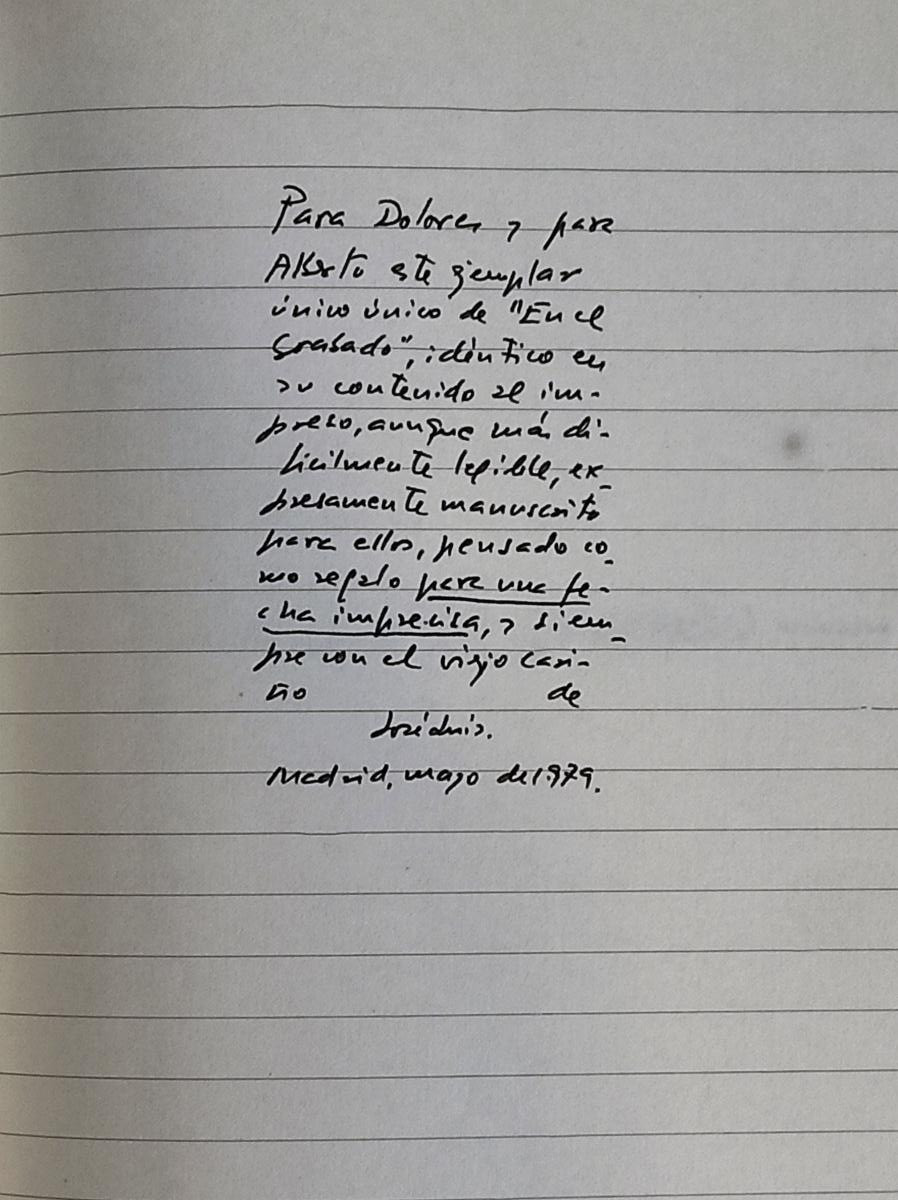 Para Dolores y para
Alberto este ejemplar
único único de "En el
grabado", idéntico en
su contenido al im-
preso, aunque más di-
ficilmente legible, ex-
presamente manuscrito
para ellos, pensado co-
mo regalo para una fe-
cha imprecisa, y siem-
pre con el viejo cari-
ño de
José Luis.
Madrid, mayo de 1.979.